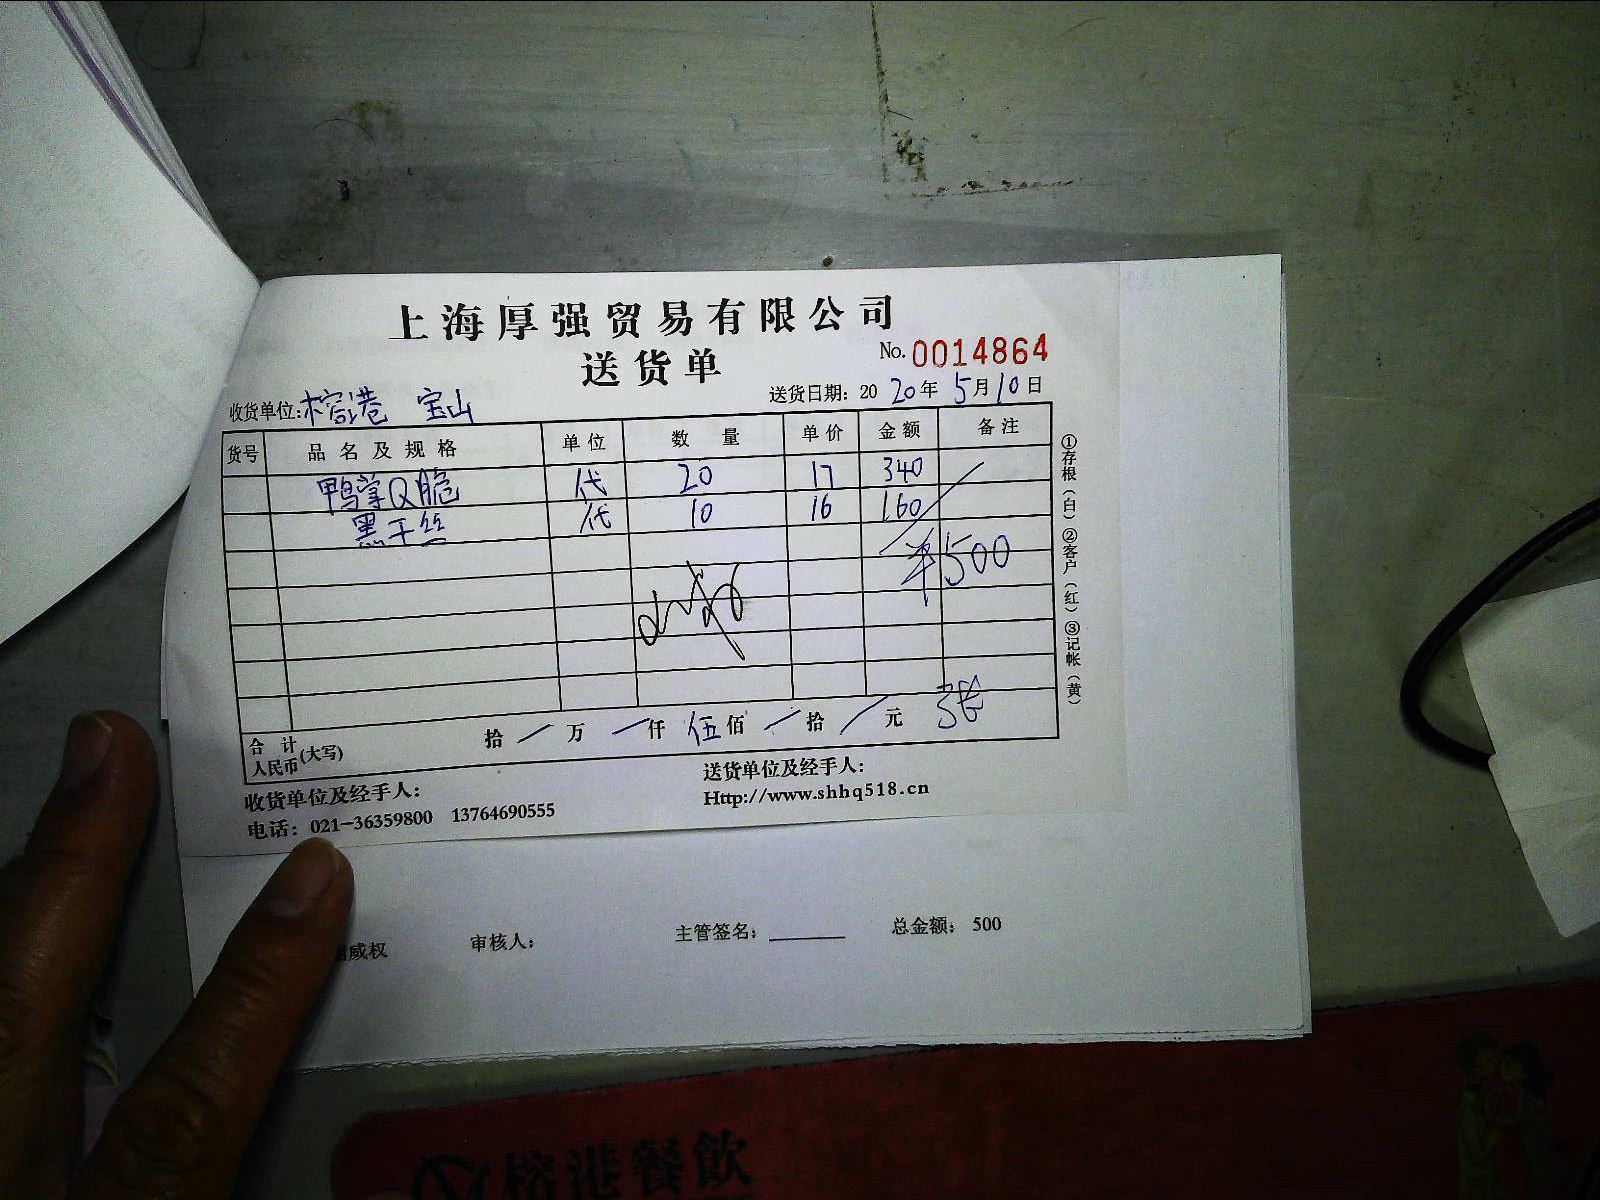 上海厚强贸易有限公司
送货单
No. 0014864
收货单位: 榕港 宝山
送货日期: 20 20 年 5 月 10 日
货号 品名及规格 单位 数量 单价 金额 备注
鸭掌Q脆 代 20 17 340
黑干丝 代 10 16 160
¥500
合计人民币(大写) 拾 / 万 / 仟 伍 佰 / 拾 / 元 张
收货单位及经手人:
送货单位及经手人:
电话: 021-36359800 13764690555
Http://www.shhq518.cn
①存根(白)②客户(红)③记帐(黄)
威权 审核人: 主管签名: 总金额: 500
榕港餐飲